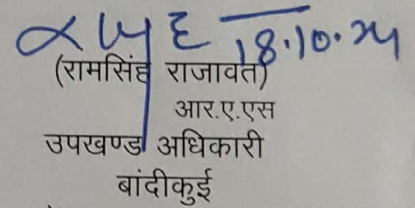 18.10.24
(रामसिंह राजावत)
आर.ए.एस
उपखण्ड अधिकारी
बांदीकुई